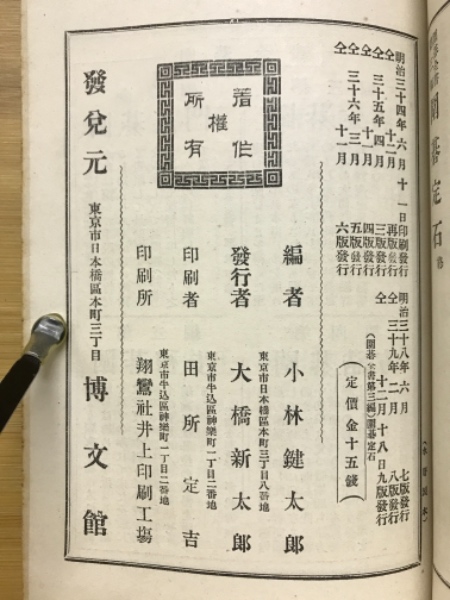 圍碁定石
明治三十四年六月十一日印刷發行
仝 十二月 再版發行
仝 三十五年四月 三版發行
仝 十一月 四版發行
仝 三十六年三月 五版發行
仝 十一月 六版發行
明治三十八年六月 七版發行
仝 三十九年二月 八版發行
十二月十八日九版發行
(圍碁全書第三編)圍碁定石
(定價金十五錢)
著作
權
所有
編者 小林鍵太郎
東京市日本橋區本町三丁目八番地
發行者 大橋新太郎
東京市牛込區神樂町一丁目二番地
印刷者 田所定吉
東京市牛込區神樂町一丁目二番地
印刷所 翔鸞社井上印刷工場
發兌元 東京市日本橋區本町三丁目 博文館